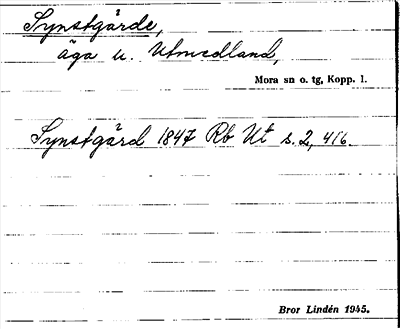 Synstgärde,
äga u. Utmedland,
Mora sn o. tg, Kopp. l.
Synstgärd 1847 Rb Ut s. 2, 416.
Bror Lindén 1945.